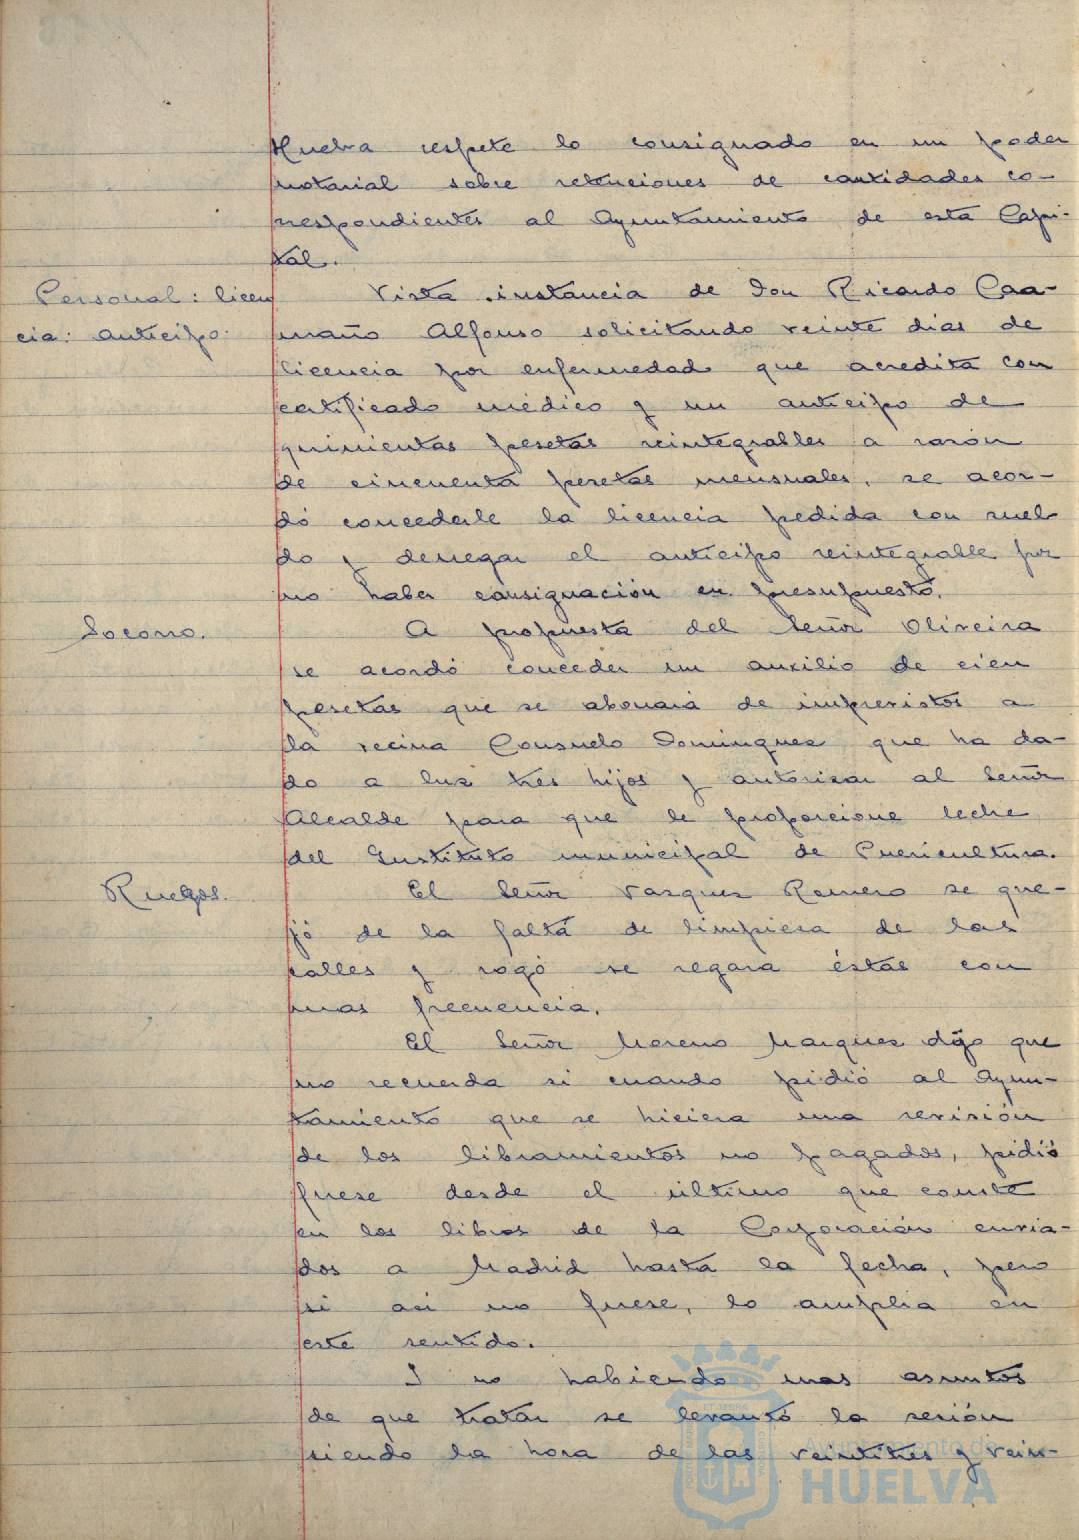 Huelva respete lo consignado en un poder
notarial sobre retenciones de cantidades co-
rrespondientes al Ayuntamiento de esta Capi-
tal.
Personal: licen
cia: anticipo.
Vista instancia de Don Ricardo Caa-
maño Alfonso solicitando veinte dias de
licencia por enfermedad que acredita con
certificado médico y un anticipo de
quinientas pesetas reintegrables a razón
de cincuenta pesetas mensuales, se acor-
dó concederle la licencia pedida con suel
do y denegar el anticipo reintegrable por
no haber consignación en presupuesto.
Socorro.
A propuesta del Señor Oliveira
se acordó conceder un auxilio de cien
pesetas que se abonará de imprevistos a
la vecina Consuelo Dominguez que ha da-
do a luz tres hijos y autorizar al Señor
Alcalde para que le proporcione leche
del Instituto municipal de Puericultura.
Ruegos.
El Señor Vazquez Romero se que-
jó de la falta de limpieza de las
calles y rogó se regara éstas con
mas frecuencia.
El Señor Moreno Marquez dijo que
no recuerda si cuando pidió al Ayun-
tamiento que se hiciera una revisión
de los libramientos no pagados, pidió
fuese desde el último que conste
en los libros de la Corporación envia-
dos a Madrid hasta la fecha, pero
si asi no fuese, lo amplia en
este sentido.
I no habiendo mas asuntos
de que tratar se levantó la sesión
siendo la hora de las veintitres y vein-
Ayuntamiento de
HUELVA